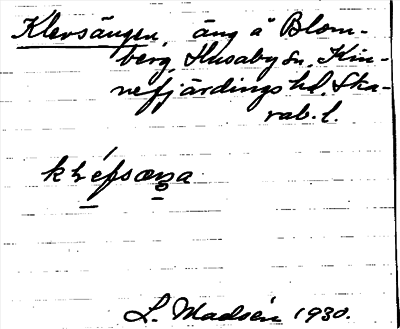 Klevsängen, äng å Blom-
berg, Husaby sn, Kin-
nefjärdings hd, Ska-
rab. l.
L. Madsén 1930.